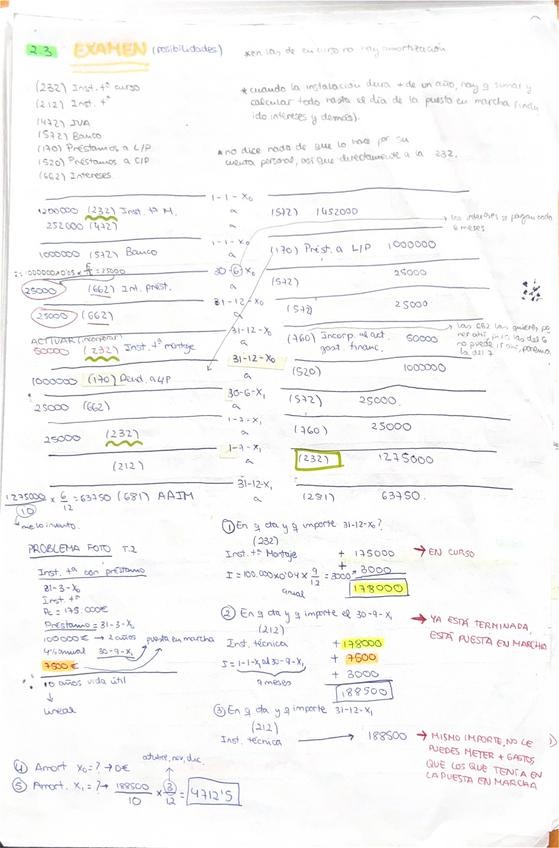 2.3 EXAMEN (posibilidades) *en las de en curso no hay amortización
(232) Inst. tª curso
(212) Inst. tª
(472) IVA
(572) Banco
(170) Préstamos a L/P
(520) Préstamos a C/P
(662) Intereses
*cuando la instalación dura + de un año, hay q sumar y
calcular todo hasta el día de la puesta en marcha (inclu
ido intereses y demás).
*no dice nada de que lo hace por su
cuenta personal, así que directamente a la 232.
1-1-X0
1200000 (232) Inst. tª M. a (572) 1452000
252000 (472)
1-1-X0
1000000 (572) Banco a (170) Prést. a L/P 1000000
→ los intereses se pagan cada
6 meses
I = 1000000x0'05 x 6/12 = 25000
30-6-X0
25000 (662) Int. prést. a (572) 25000
31-12-X0
25000 (662) a (572) 25000
ACTIVAR (incorporar)
31-12-X0
50000 (232) Inst. tª montaje a (760) Incorp. al act. gast. financ. 50000
31-12-X0
1000000 (170) Deud. a L/P a (520) 1000000
30-6-X1
25000 (662) a (572) 25000.
1-7-X1
25000 (232) a (760) 25000
1-7-X1
(212) a (232) 1275000
31-12-X1
1275000/10 x 6/12 = 63750 (681) AAIM a (281) 63750.
me lo invento.
PROBLEMA FOTO T.2
Inst. tª con préstamo
31-3-X0
Inst. tª
Pc = 175.000€
Préstamo = 31-3-X0
100000€ → 2 años
4% anual 30-9-X1 puesta en marcha
7500€
10 años vida útil
↓
lineal
① En q cta y q importe 31-12-X0?
(232)
Inst. tª Montaje + 175000 → EN CURSO
+
I = 100.000x0'04 x 9/12 = 3000 3000
anual 178000
② En q cta y q importe el 30-9-X1
(212)
→ YA ESTÁ TERMINADA,
ESTÁ PUESTA EN MARCHA
Inst. técnica + 178000
+ 7500
I = 1-1-X1 al 30-9-X1 + 3000
9 meses
188500
③ En q cta y q importe 31-12-X1
(212)
Inst. técnica → 188500 → MISMO IMPORTE, NO LE
PUEDES METER + GASTOS
QUE LOS QUE TENÍA EN
LA PUESTA EN MARCHA
④ Amort X0 = ? → 0€
octubre, nov, dic.
⑤ Amort. X1 = ? → 188500/10 x 3/12 = 4712'5